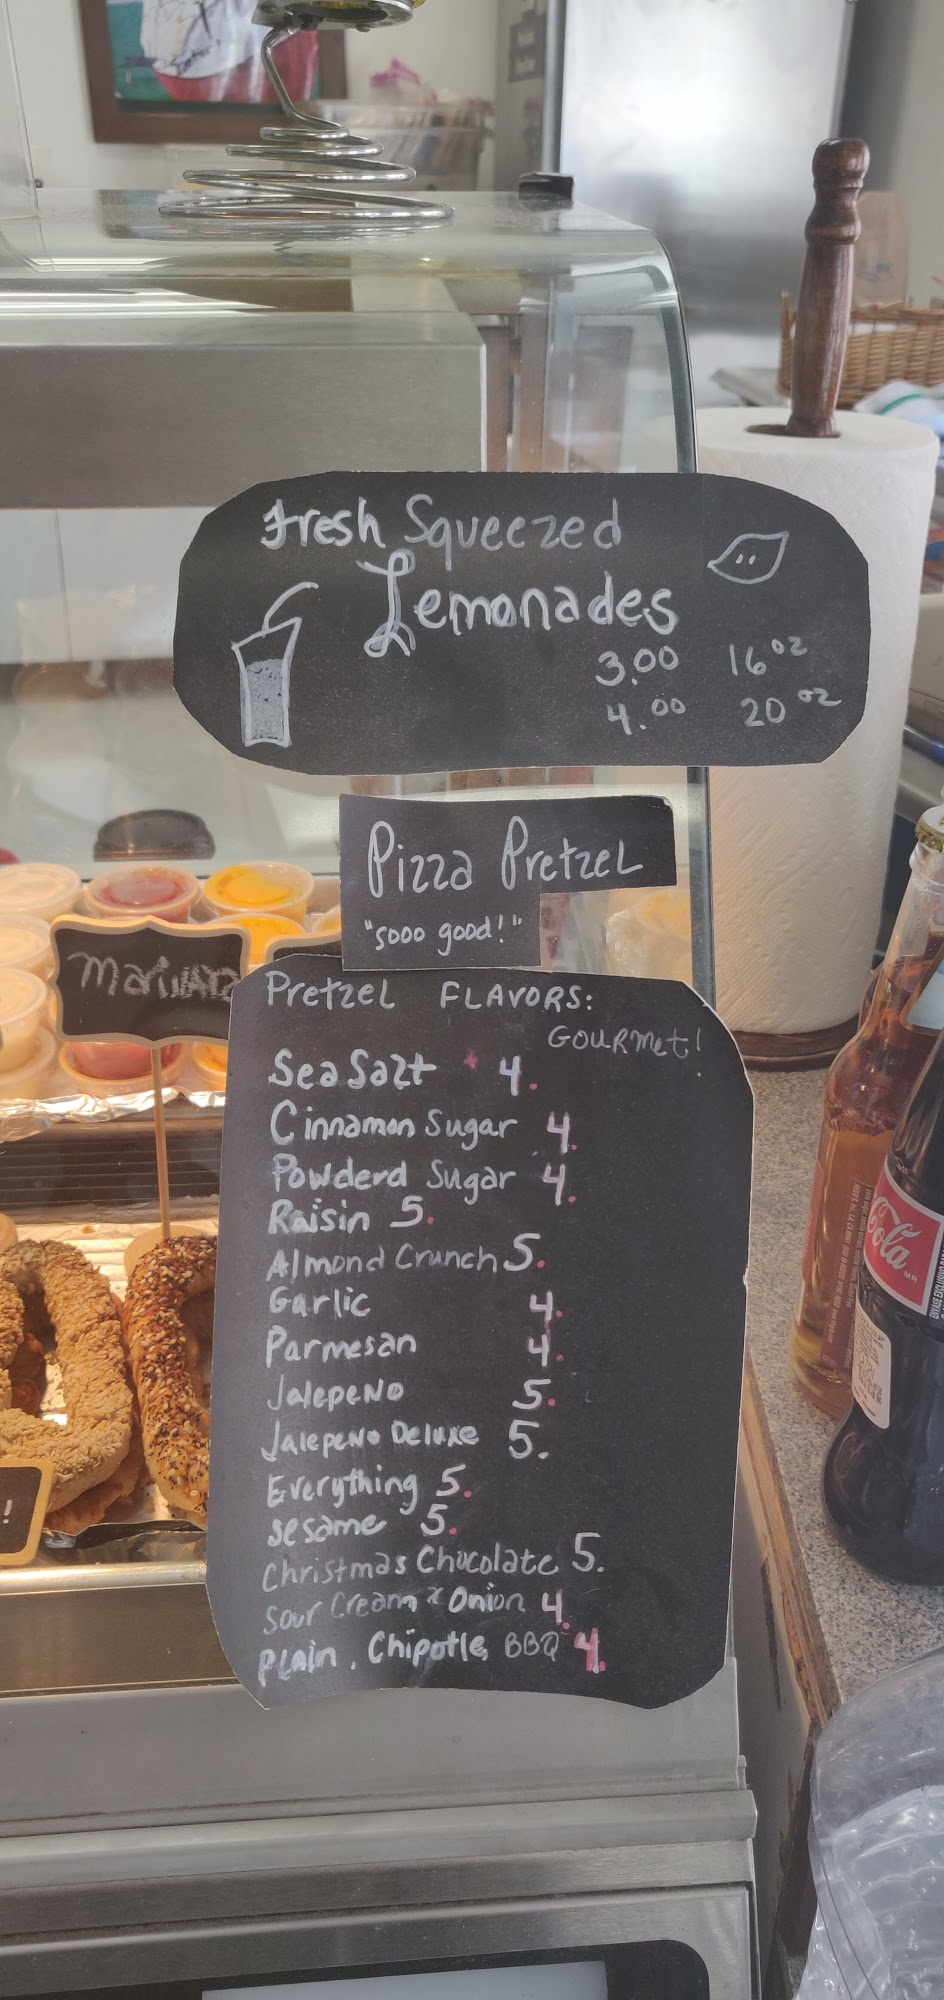 Fresh Squeezed
Lemonades
3.00 16 oz
4.00 20 oz
Pizza Pretzel
"sooo good!"
Marinara
Pretzel FLAVORS:
GOURMet!
Sea Salt 4.
Cinnamon Sugar 4.
Powderd Sugar 4.
Raisin 5.
Almond Crunch 5.
Garlic 4.
Parmesan 4.
Jalepeno 5.
Jalepeno Deluxe 5.
Everything 5.
sesame 5.
Christmas Chocolate 5.
Sour Cream & Onion 4.
Plain, Chipotle BBQ 4.
Cola